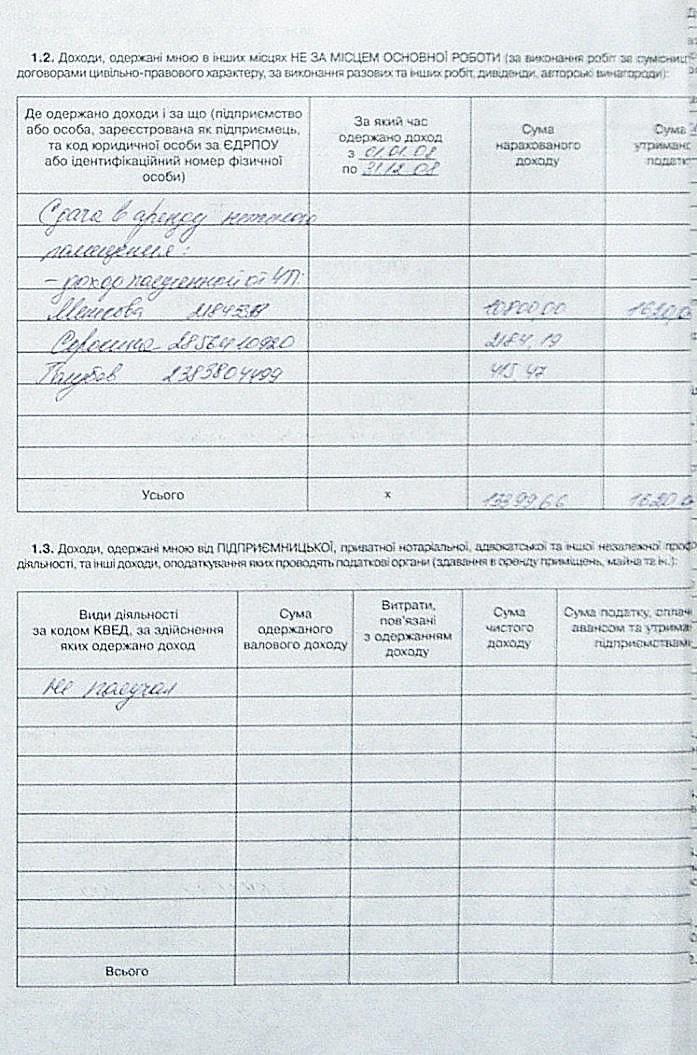 1.2. Доходи, одержані мною в інших місцях НЕ ЗА МІСЦЕМ ОСНОВНОЇ РОБОТИ (за виконання робіт за сумісниц
договорами цивільно-правового характеру, за виконання разових та інших робіт, дивіденди, авторські винагороди):
Де одержано доходи і за що (підприємство
або особа, зареєстрована як підприємець,
та код юридичної особи за ЄДРПОУ
або ідентифікаційний номер фізичної
особи)
За який час
одержано доход
з 01.01.08
по 31.12.08
Сума
нарахованого
доходу
Сума
утримано
податк
Сдача в аренду нежилого
помещения:
- доход полученной от ЧП:
10800.00 1620,0
Серосина 2856410920 2184,19
Голубев 2383804499 415,47
Усього х 13399,66 1620.0
1.3. Доходи, одержані мною від ПІДПРИЄМНИЦЬКОЇ, приватної нотаріальної, адвокатської та іншої незалежної проф
діяльності, та інші доходи, оподаткування яких проводять податкові органи (здавання в оренду приміщень, майна та ін.):
Види діяльності
за кодом КВЕД, за здійснення
яких одержано доход
Сума
одержаного
валового доходу
Витрати,
пов'язані
з одержанням
доходу
Сума
чистого
доходу
Сума податку, сплач
авансом та утрима
підприємствам
Не получал
Всього